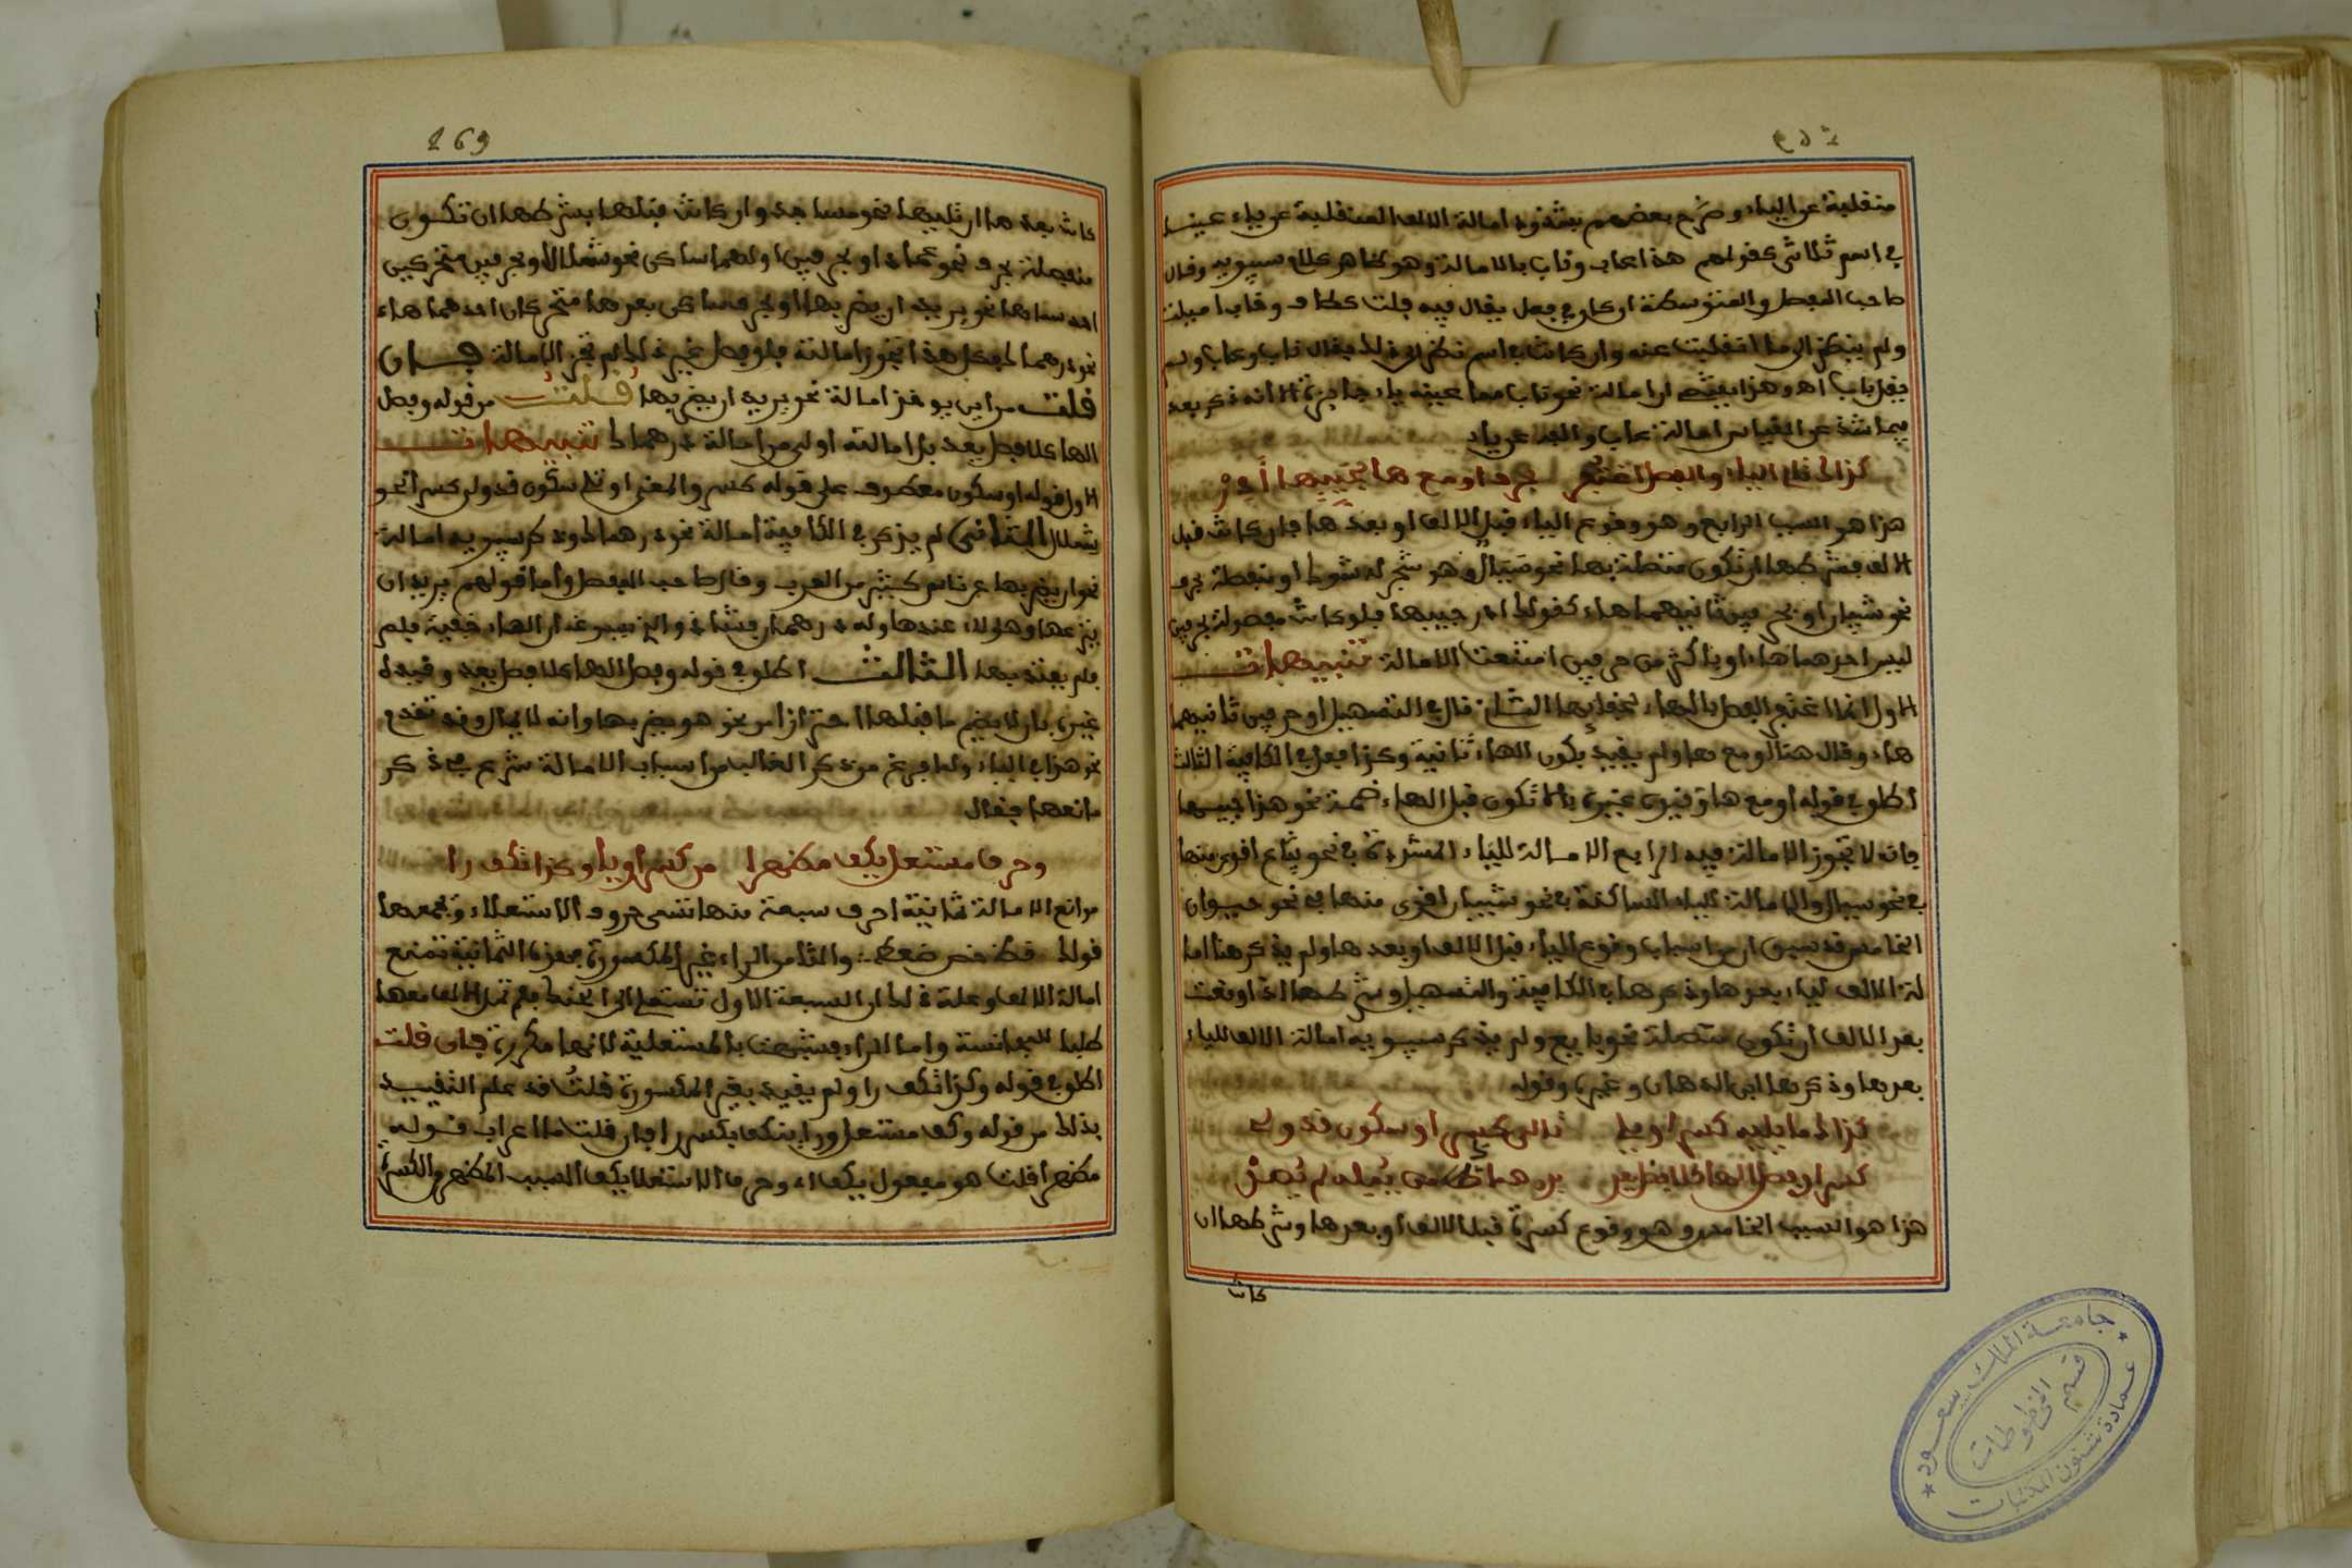 منقلبة عن الياء وصرح بعضهم بشذوذ امالة الالف المنقلبة عن ياء عينا
في اسم ثلاثي كقولهم هذا عاب وناب بالامالة وهو ظاهر كلام سيبويه وقال
صاحب المفصل والمتوسطة ان كان في فعل يقال فيه فلت كطاب وخاب اميلت
ولم ينظر الى ما انقلبت عنه وان كانت في اسم نظر الى ذلك يقال ناب وعاب ولم
يقل باب اه وهذا امالة نحو ناب مما عينه ياء جايزة الا انه ذكر بعد
فيما شذ عن القياس امالة عاب والفه عن ياء
كذاك تالي الياء والفصل اغتفر بحرف او مع ها كجيبها أدر
هذا هو السبب الرابع وهو وقوع الياء قبل الالف او بعدها فان كانت قبل
الالف فشرطها ان تكون متصلة بها نحو سيال وهو شجر له شوك او منفصلة بحرف
نحو شيبان او بحرفين ثانيهما هاء كقولك ادر جيبها فلو كانت مفصولة بحرفين
ليس احدهما هاء او باكثر من حرفين امتنعت الامالة تنبيهات
الاول انما اغتفر الفصل بالهاء لخفائها الثاني قال في التسهيل او حرفين ثانيهما
هاء وقال هنا او مع ها ولم يقيد بكون الهاء ثانية وكذا فعل في الكافية الثالث
اطلق في قوله او مع ها وقيده غيره بالا تكون قبل الهاء ضمة نحو هذا جيبها
فانه لا تجوز الامالة فيه الرابع الامالة للياء المشددة في نحو بياع اقوى منها
في نحو سيال والامالة للياء الساكنة في نحو شيبان اقوى منها في نحو حيوان
الخامس قد سبق ان من اسباب وقوع الياء قبل الالف او بعدها ولم يذكر هنا اما
لة الالف لياء بعدها وذكرها في الكافية والتسهيل وشرطها اذا وقعت
بعد الالف ان تكون متصلة نحو بايع ولم يذكر سيبويه امالة الالف للياء
بعدها وذكرها ابن الدهان وغيره وقوله
كذاك ما يليه كسر او يلي تالي كسر او سكون قد ولي
كسرا وفصل الها كلا فصل يعد فدرهماك من يمله لم يصد
هذا هو السبب الخامس وهو وقوع كسرة قبل الالف او بعدها وشرطها ان
كانت
169
كانت بعدها ان تليها نحو مساجد وان كانت قبلها بشرطها ان تكون
منفصلة بحرف نحو عماد او بحرفين اولهما ساكن نحو شملال او بحرفين متحركين
احدهما ها نحو يريد ان يضربها او بحرف ساكن بعدها متحركان احدهما هاء
نحو درهماك فكل هذا تجوز امالته فلو فصل غير ذلك لم تجز الامالة فان
قلت من اين يوخذ امالة نحو يريد ان يضربها قلت من قوله وفصل
الها كلا فصل يعد بل امالته اولى من امالة درهماك تنبيهات
الاول قوله او سكون معطوف على قوله كسر والمعنى او تلى سكون قد ولى كسرا نحو
شملال الثاني لم يذكر في الكافية امالة نحو درهماك وذكر سيبويه امالة
نحو ان يضربها عن ناس كثير من العرب وقال صاحب المفصل واما قولهم يريد ان
ينزعها وهؤلاء عندها وله درهمان فشاذ والذي سوغه ان الهاء خفية فلم
فلم يعتد بها الثالث اطلق في قوله وفصل الها كلا فصل يعد وقيده
غيره بان لا ينضم ما قبلها احترازا من نحو هو يضربها وانه لا يمال وقد تقدم
نحو هذا في الياء ولما فرغ من ذكر الغالب من اسباب الامالة شرع في ذكر
مانعها فقال
وحرف مستعل يكف مظهرا من كسر او يا وكذا تكف را
موانع الامالة ثمانية احرف سبعة منها تسمى حروف الاستعلاء وتجمعها
قولك قظ خص ضغط والثامن الراء غير المكسورة فهذه الثمانية تمنع
امالة الالف وعلة ذلك ان السبعة الاول تستعلي الى الحنك فلم تمل الالف معها
طلبا للمجانسة واما الراء فشبهت بالمستعلية لانها مكررة فان قلت
اطلق في قوله وكذا تكف را ولم يقيد بغير المكسورة قلت قد علم التقييد
بذلك من قوله وكف مستعل ورا ينكف بكسر را فان قلت ما اعراب قوله
مظهرا قلت هو مفعول يكف اي وحرف الاستعلا يكف السبب المظهر والكسرة
جامعة الملك سعود
عمادة شئون المكتبات
قسم المخطوطات